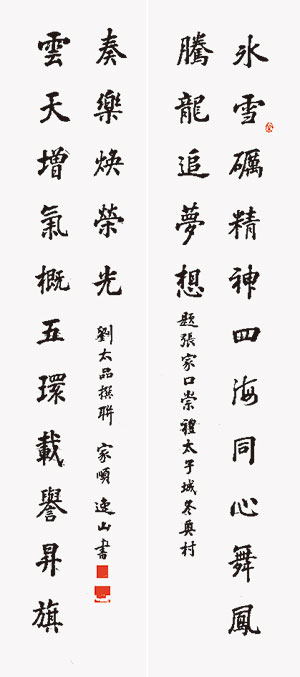 氷雪礪精神四海同心舞鳳
騰龍追夢想
題張家口崇禮太子城冬奥村
雲天增氣概五環載譽昇旗
奏樂煥榮光
劉太品撰聯 家順 逸山書